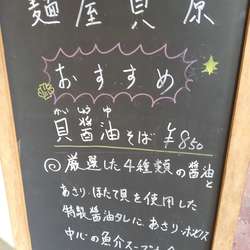 麺屋貝原
おすすめ
がい しょう ゆ
貝醤油そば ¥850
◎厳選した4種類の醤油と
あさり、ほたて貝を使用した
特製醤油タレに、あさり、ホンビノス
中心の魚介スープ